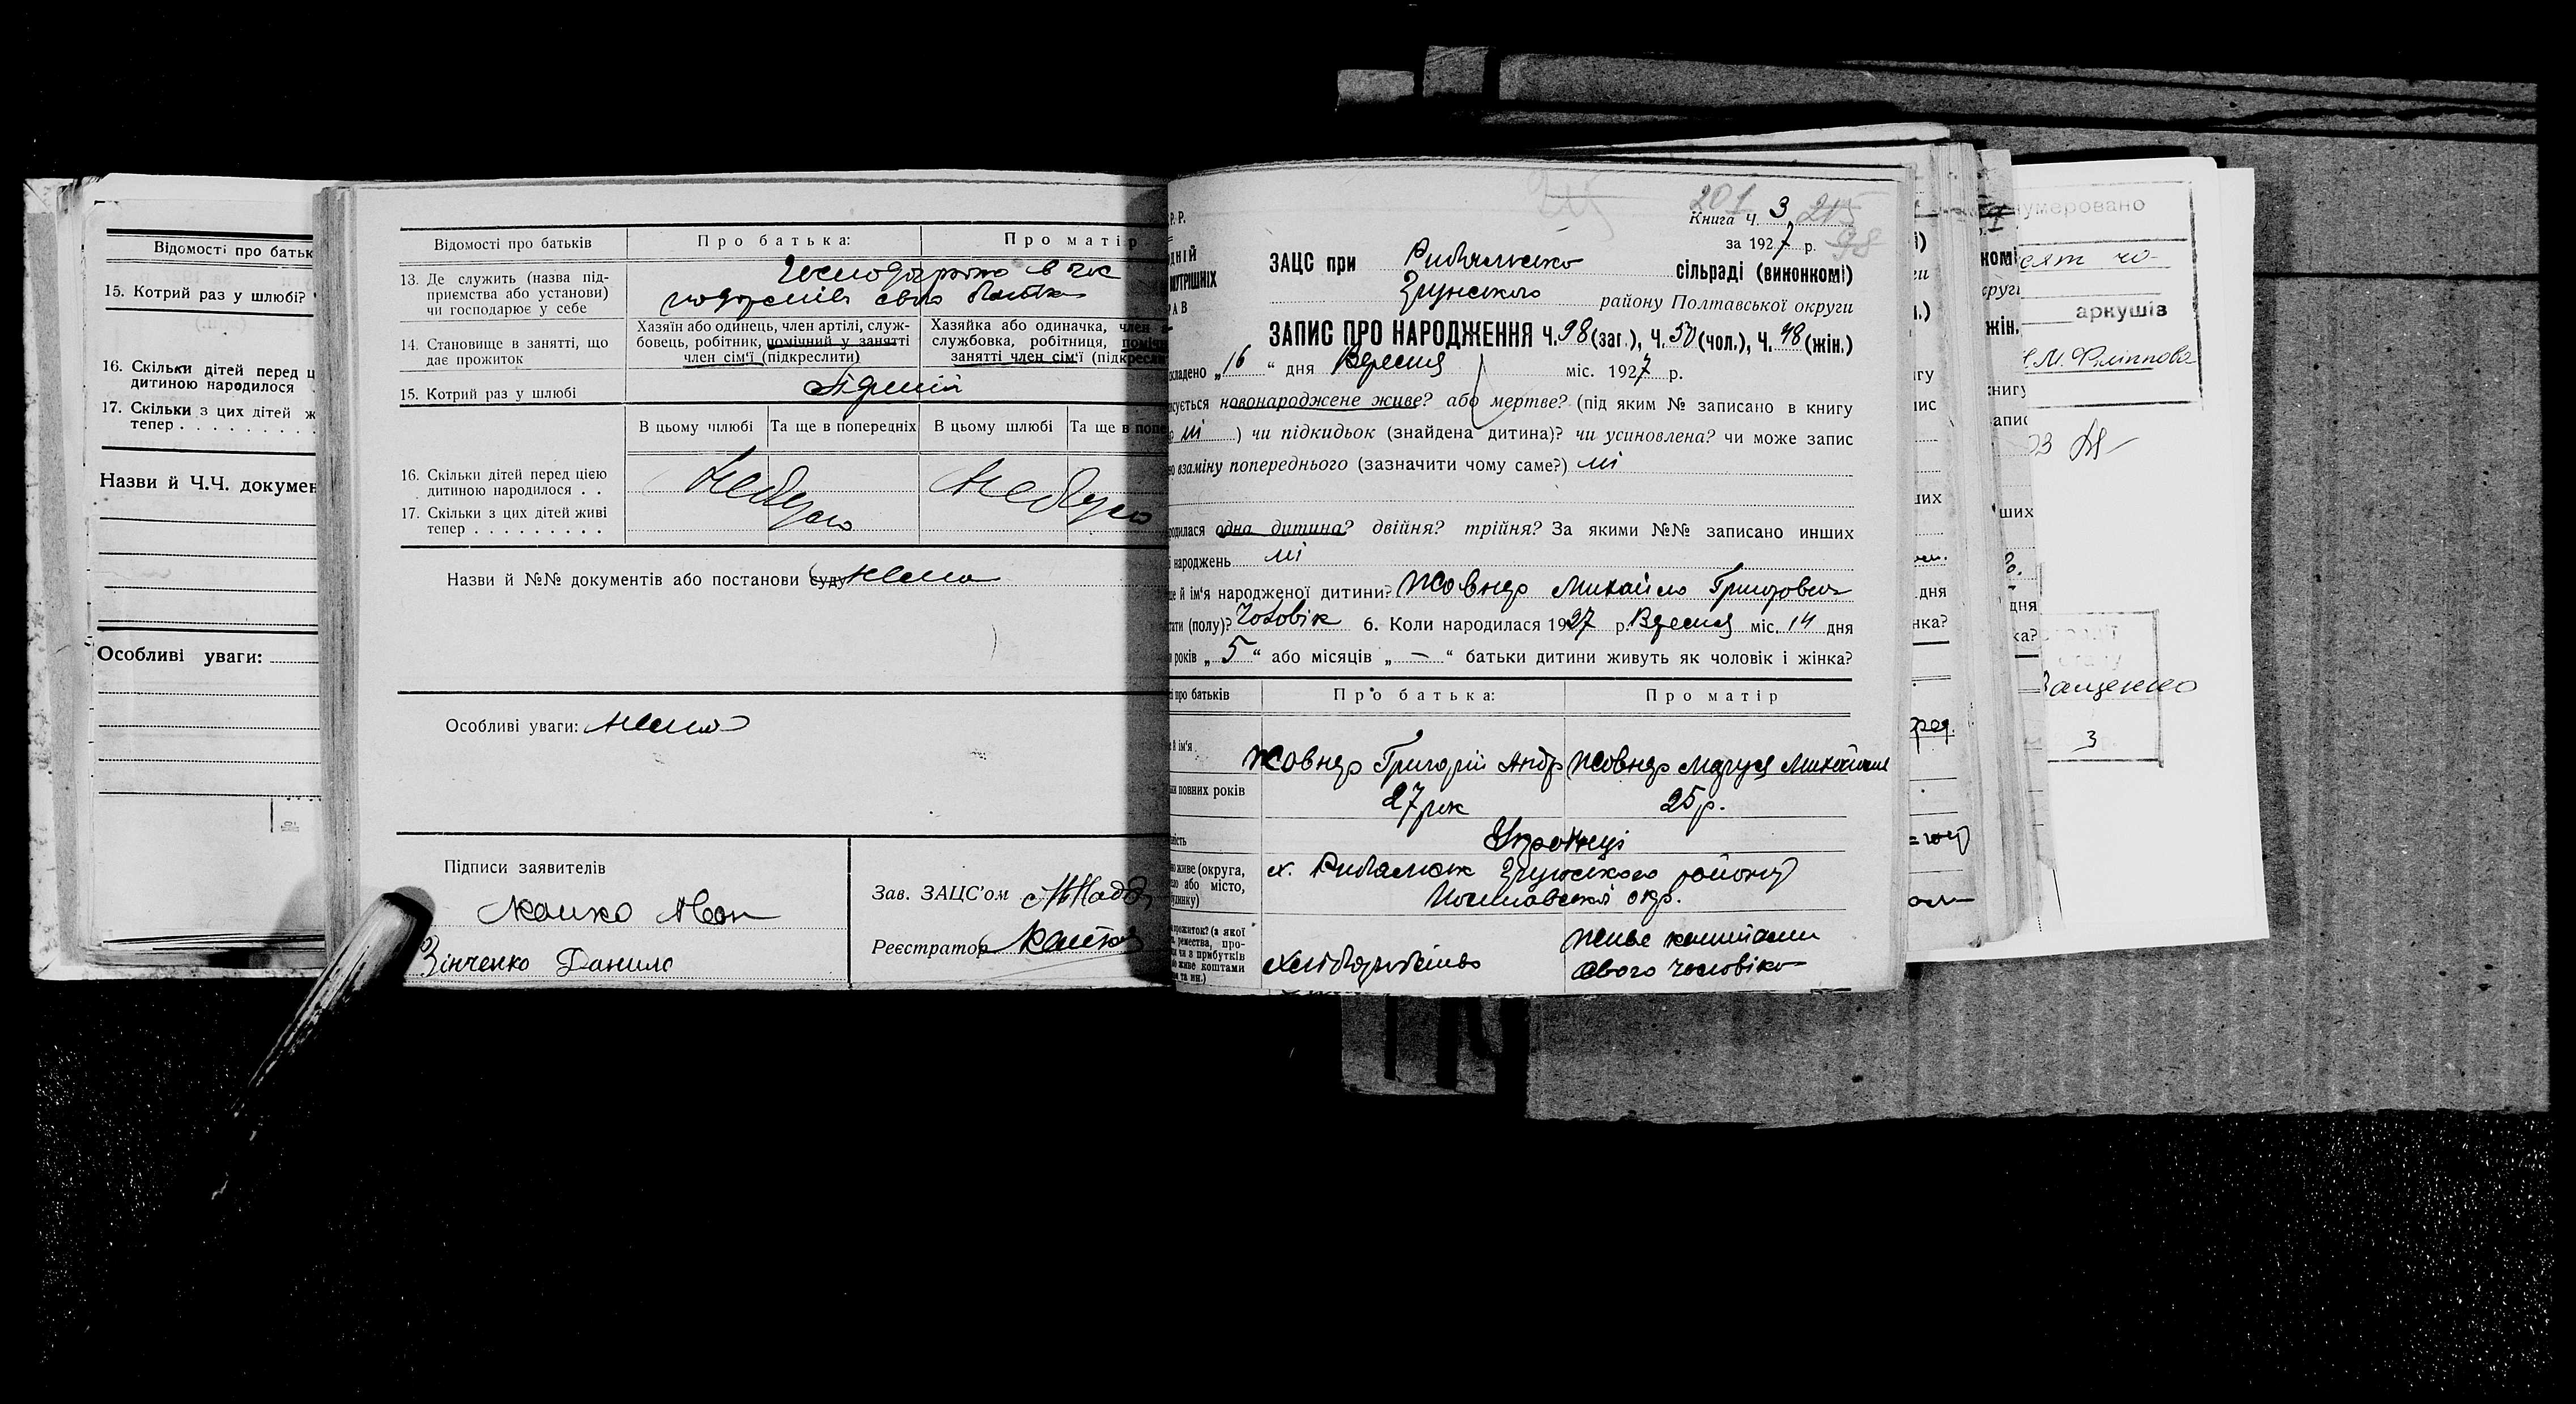 Відомості про батьк
15. Котрий раз у шлюбі?
16. Скільки дітей перед ц
дитиною народилося
17. Скільки з цих дітей ж
тепер . . . . . . . . .
Назви й Ч.Ч. докумен
Особливі уваги:
Відомості про батьків
Про батька:
Про матір
13. Де служить (назва під-
приємства або установи)
чи господарює у себе
14. Становище в занятті, що
дає прожиток
Хазяїн або одинець, член артілі, служ-
бовець, робітник, помічний у занятті
член сім'ї (підкреслити)
Хазяйка або одиначка, член а
службовка, робітниця, поміч
занятті член сім'ї (підкресли
15. Котрий раз у шлюбі
В цьому шлюбі
Та ще в попередніх
В цьому шлюбі
Та ще в попе
16. Скільки дітей перед цією
дитиною народилося . .
17. Скільки з цих дітей живі
тепер . . . . . . . . .
Небуло
Небуло
Назви й №№ документів або постанови суду нема
Особливі уваги: нема
Підписи заявителів
Іван
Зінченко Данило
Зав. ЗАЦС'ом
Реєстратор
Р. Р.
201 215
Книга Ч. 3
за 1927 р. 98
ЗАЦС при Рибальсько сільраді (виконкомі)
району Полтавської округи
ЗАПИС ПРО НАРОДЖЕННЯ Ч. 98 (заг.), Ч. 50 (чол.), Ч. 48 (жін.)
складено „16“ дня Вересня міс. 1927 р.
сується новонароджене живе? або мертве? (під яким № записано в книгу
ні ) чи підкидьок (знайдена дитина)? чи усиновлена? чи може запис
взаміну попереднього (зазначити чому саме?) ні
родилася одна дитина? двійня? трійня? За якими №№ записано инших
народжень ні
ще й ім'я народженої дитини? Жовнір Михайло Григорович
тати (полу)? Чоловік 6. Коли народилася 1927 р. Вересня міс. 14 дня
років „5“ або місяців „—“ батьки дитини живуть як чоловік і жінка?
і про батьків
Про батька:
Про матір
й ім'я
Жовнір Григорій Андр
Жовнір Маруся Михайлів
повних років
27 рок
25 р.
Українці
но живе (округа,
або місто,
х. Рибальськ району
Полтавської окр.
прожиток? (з якої
ремества, про-
чи з прибутків
живе коштами
та ин.)
Хліборобство
Живе коштами
свого чоловіка
нумеровано
аркушів
3